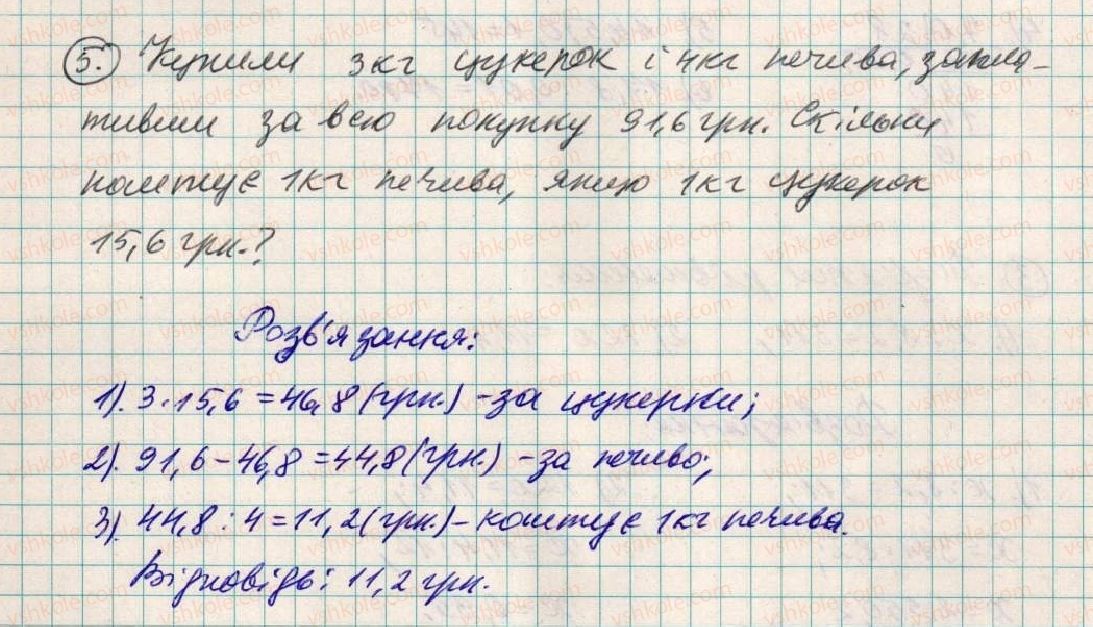 5. Купили 3кг цукерок і 4кг печива, запла-
тивши за всю покупку 91,6 грн. Скільки
коштує 1кг печива, якщо 1кг цукерок
15,6 грн.?
Розв'язання:
1). 3·15,6 = 46,8 (грн.) - за цукерки;
2). 91,6 - 46,8 = 44,8 (грн.) - за печиво;
3). 44,8 : 4 = 11,2 (грн.) - коштує 1кг печива.
Відповідь: 11,2 грн.